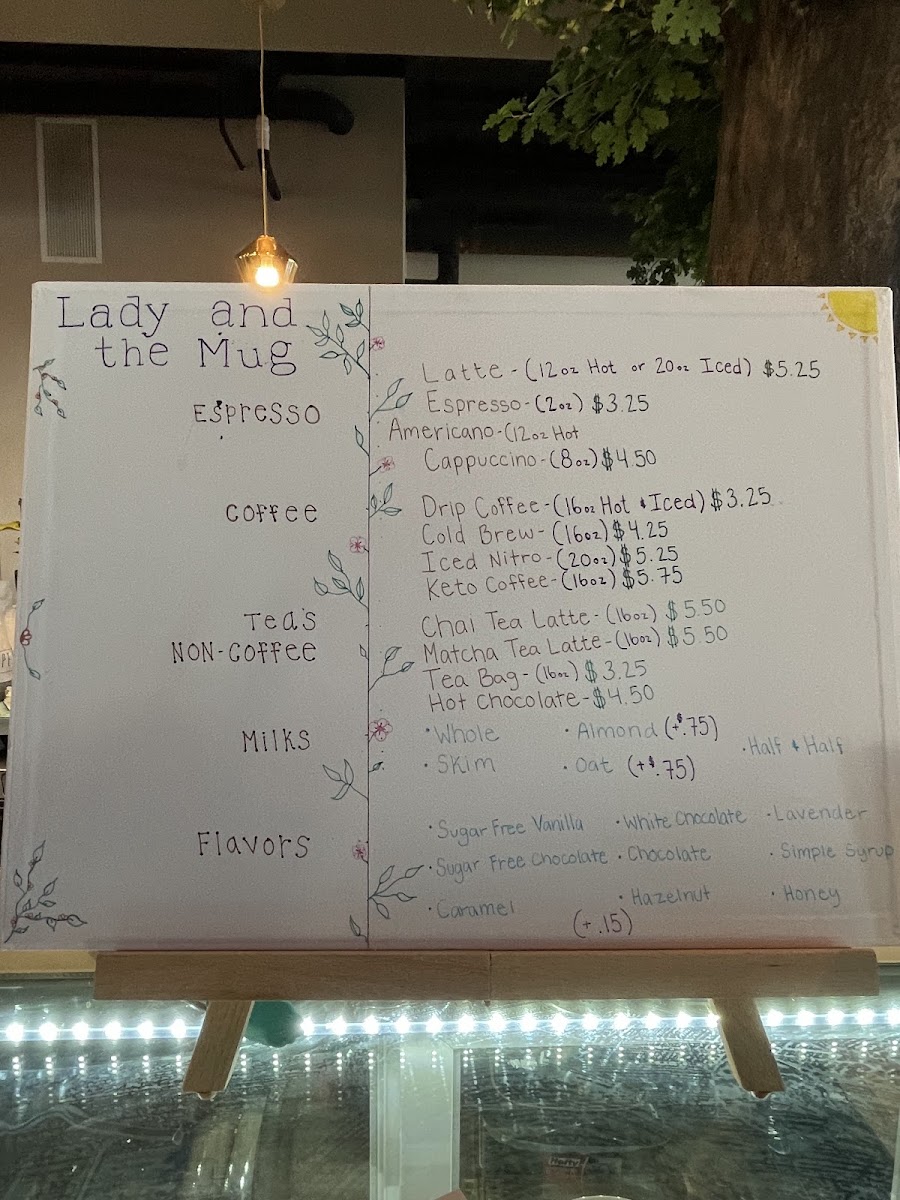 Lady and
the Mug
Espresso
Latte - (12oz Hot or 20oz Iced) $5.25
Espresso - (2oz) $3.25
Americano - (12oz Hot
Cappuccino - (8oz) $4.50
Coffee
Drip Coffee - (16oz Hot & Iced) $3.25
Cold Brew - (16oz) $4.25
Iced Nitro - (20oz) $5.25
Keto Coffee - (16oz) $5.75
Teas
NON-Coffee
Chai Tea Latte - (16oz) $5.50
Matcha Tea Latte - (16oz) $5.50
Tea Bag - (16oz) $3.25
Hot Chocolate - $4.50
Milks
• Whole • Almond (+$.75) • Half & Half
• Skim • Oat (+$.75)
Flavors
• Sugar Free Vanilla • White Chocolate • Lavender
• Sugar Free Chocolate • Chocolate • Simple Syrup
• Caramel • Hazelnut • Honey
(+ .15)